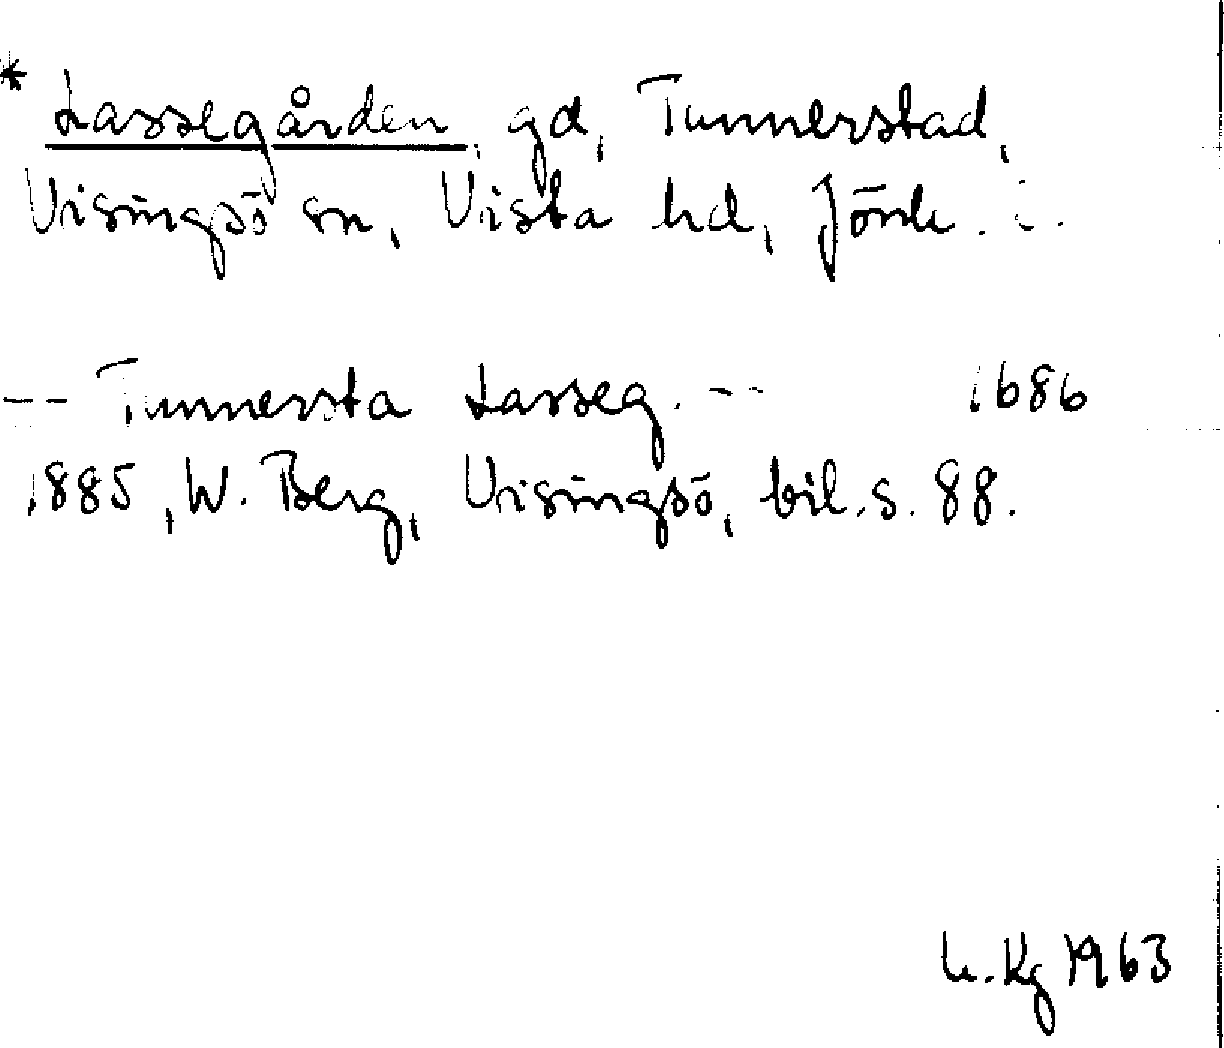 * Lassegården, gd, Tunnerstad,
Visingsö sn, Vista hd, Jönk. l.
-- Tunnersta Lasseg. -- 1686
1885, W. Berg, Visingsö, bil. s. 88.
1963